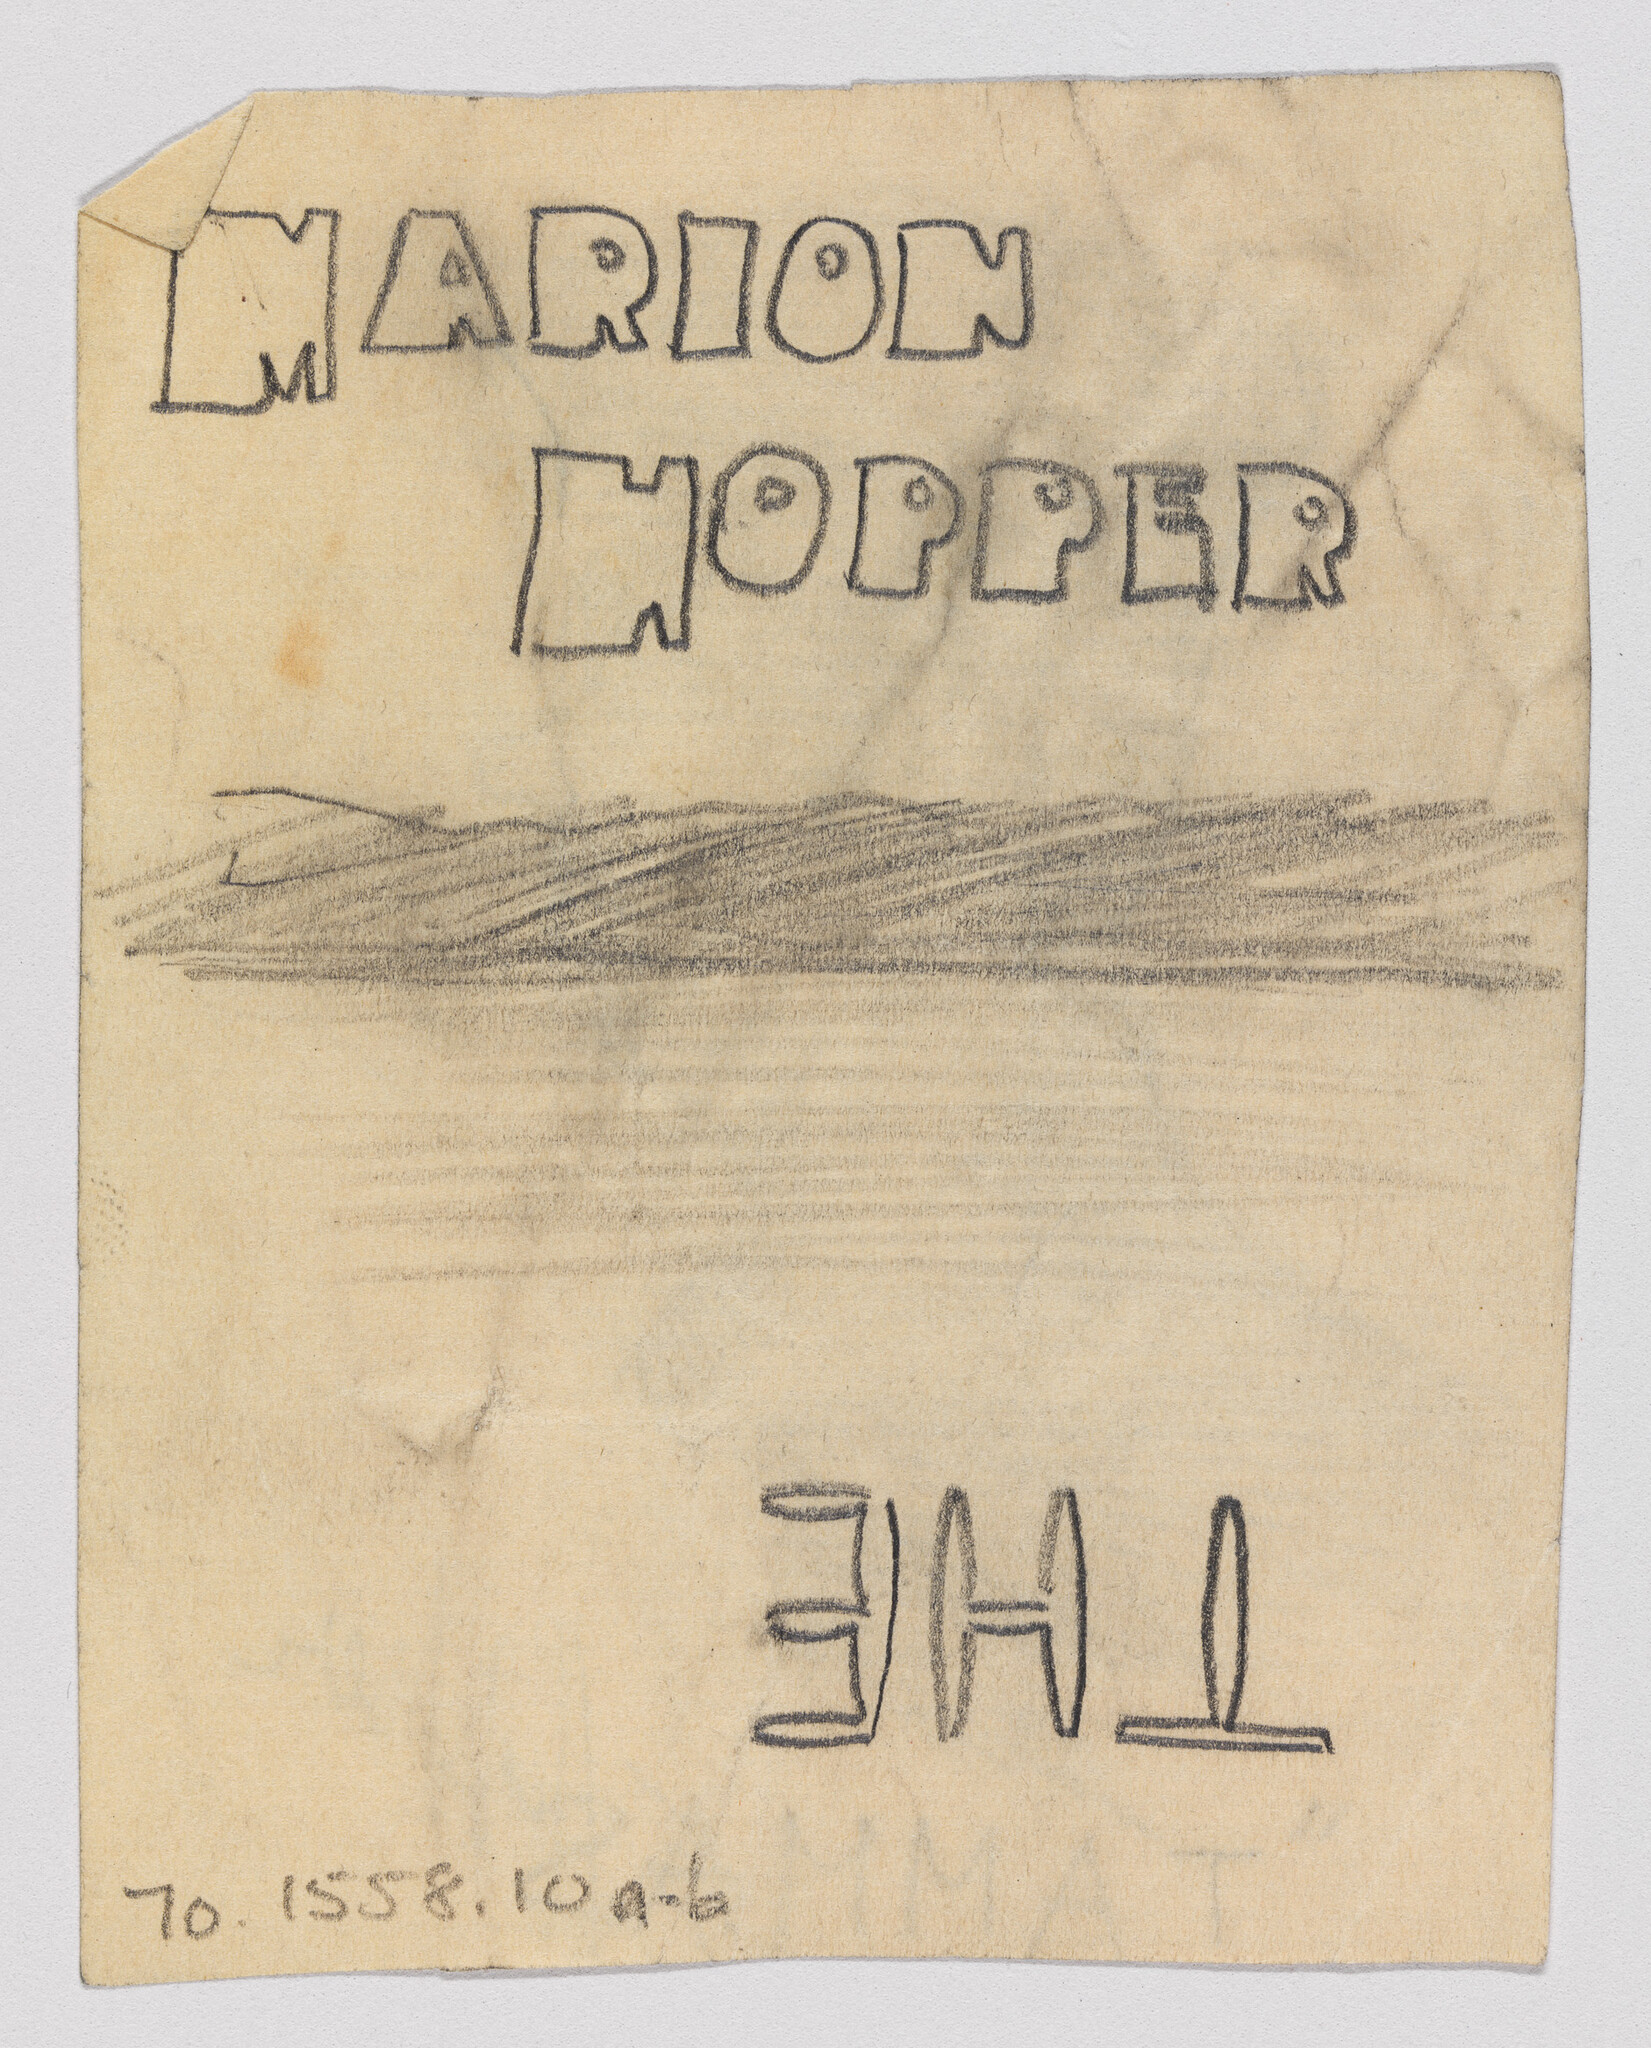 MARION
HOPPER
THE
70.1558.10a-b